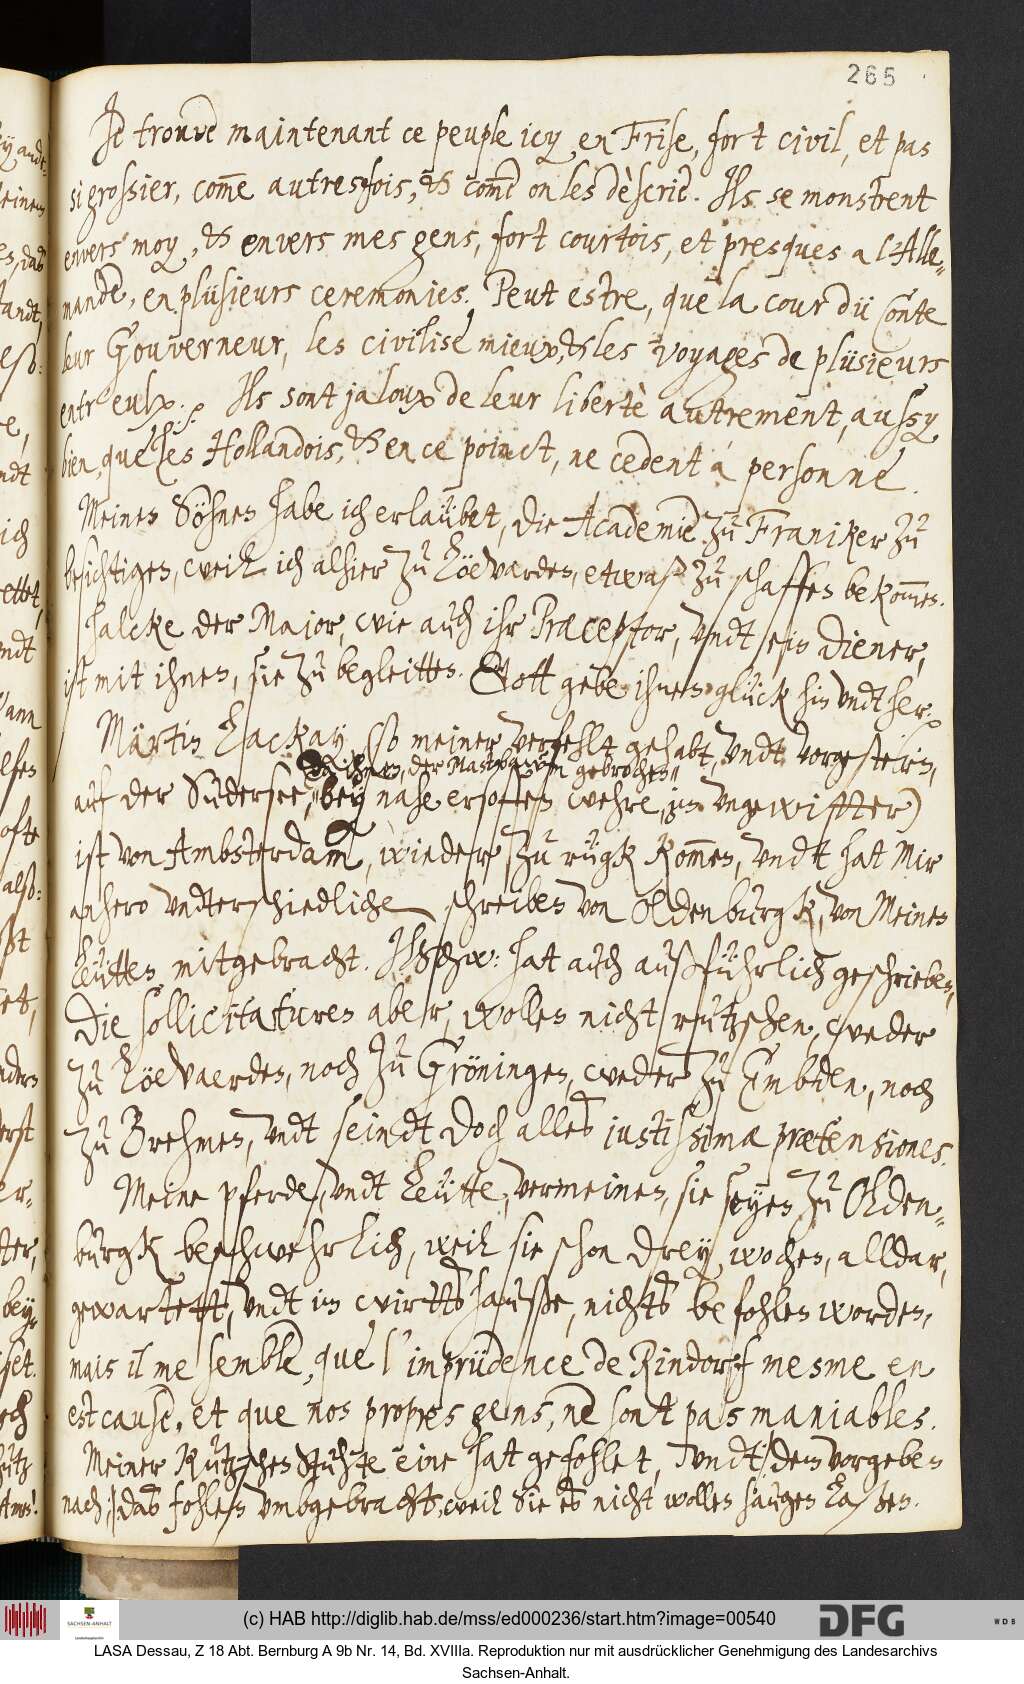 265
Je trouve maintenant ce peuple icy, en Frise, fort civil, et pas
si grossier, com̅e autresfois, & com̅e on les dèscrit. Ils se monstrent
envers moy, & envers mes gens, fort courtois, et presques a l'Alle-
mande, en plüsieurs ceremonies. Peut estre, que la cour dü Conte
leur Gouverneur, les civilise mieux, & les voyages de plüsieurs
entr'eulx. Ils sont jaloux de leur libertè autrement, aussy
bien, que les Hollandois, & en ce poinct, ne cedent a personne.
Meinen Söhnen habe ich erlaübet, die Academie zu Franiker zu
besichtigen, weil ich alhier zu Löewarden, etwaß zu schaffen bekom̅en.
Halcke der Major, wie auch ihr Præceptor, undt ein diener,
ist mit ihnen, sie zu begleitten. Gott gebe ihnen glück hin undt her.
Märtin Lackay, (so meiner verfehlt gehabt, undt vorgestern,
da ihnen, der Mastbaum gebrochen
auf der Sudersee, bey nahe ersoffen wehre, im ungewitter)
ist von Ambsterdam, wieder zu rügk kom̅en, undt hat Mir
anhero undterschiedliche schreiben von Oldenburgk, von Meinen
Leütten mitgebracht. Jhre hat auch außführlich geschrieben,
Die sollicitaturen aber, wollen nicht rutzschen, weder
zu Löewaerden, noch zu Gröningen, weder zu Embden, noch
zu Brehmen, undt seindt doch alles justissimæ prætensiones.
Meine pferde, undt Leütte, vermeinen, sie seyen zu Olden-
burgk beschwehrlich, weil sie schon drey wochen, alldar,
gewartett, undt im wirttshauße, nichts befohlen worden,
mais il me semble, que l'imprüdence de Rindorf mesme en
est cause, et que nos propres gens, ne sont pas maniables.
Meiner Kutzschen Stuhte eine hat gefohlet, undt dem vorgeben
nach, das fohlen umbgebracht, weil Sie es nicht wollen saugen laßen.
(c) HAB http://diglib.hab.de/mss/ed000236/start.htm?image=00540
SACHSEN-ANHALT
DFG
W D B
LASA Dessau, Z 18 Abt. Bernburg A 9b Nr. 14, Bd. XVIIIa. Reproduktion nur mit ausdrücklicher Genehmigung des Landesarchivs
Sachsen-Anhalt.